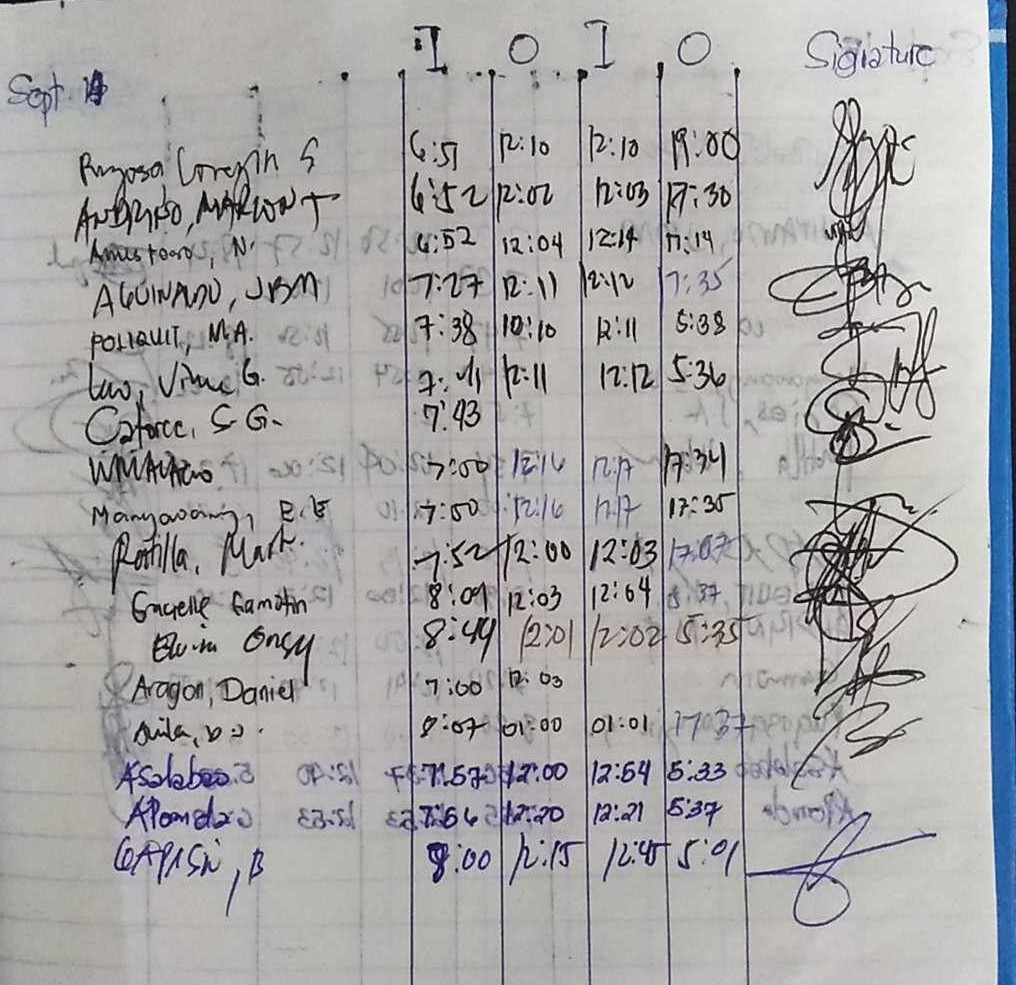 I O I O Signature
Sept.
6:51 12:10 12:10 19:00
ANDRINO, MARION T 6:52 12:02 12:03 17:30
N. 6:52 12:04 12:14 17:14
AGUINALDO, JBM 7:27 12:11 12:12 7:35
POLIQUIT, M.A. 7:38 10:10 12:11 5:38
G. 7:41 12:11 12:12 5:36
Catarce, S.G. 7:43
7:00 12:16 12:17 17:34
E.E 7:50 12:16 12:17 17:35
Ratilla, Mark. 7:52 12:00 12:03 17:07
Gracielle Gamotin 8:09 12:03 12:04 5:37
Elwin Ongy 8:44 12:01 12:02 5:35
Aragon, Daniel 7:00 12:03
8:07 01:00 01:01 17:37
ASalabao 7:57 12:00 12:54 5:33
APomida 7:54 12:20 12:21 5:37
GAPISIN, B 8:00 12:15 12:45 5:01